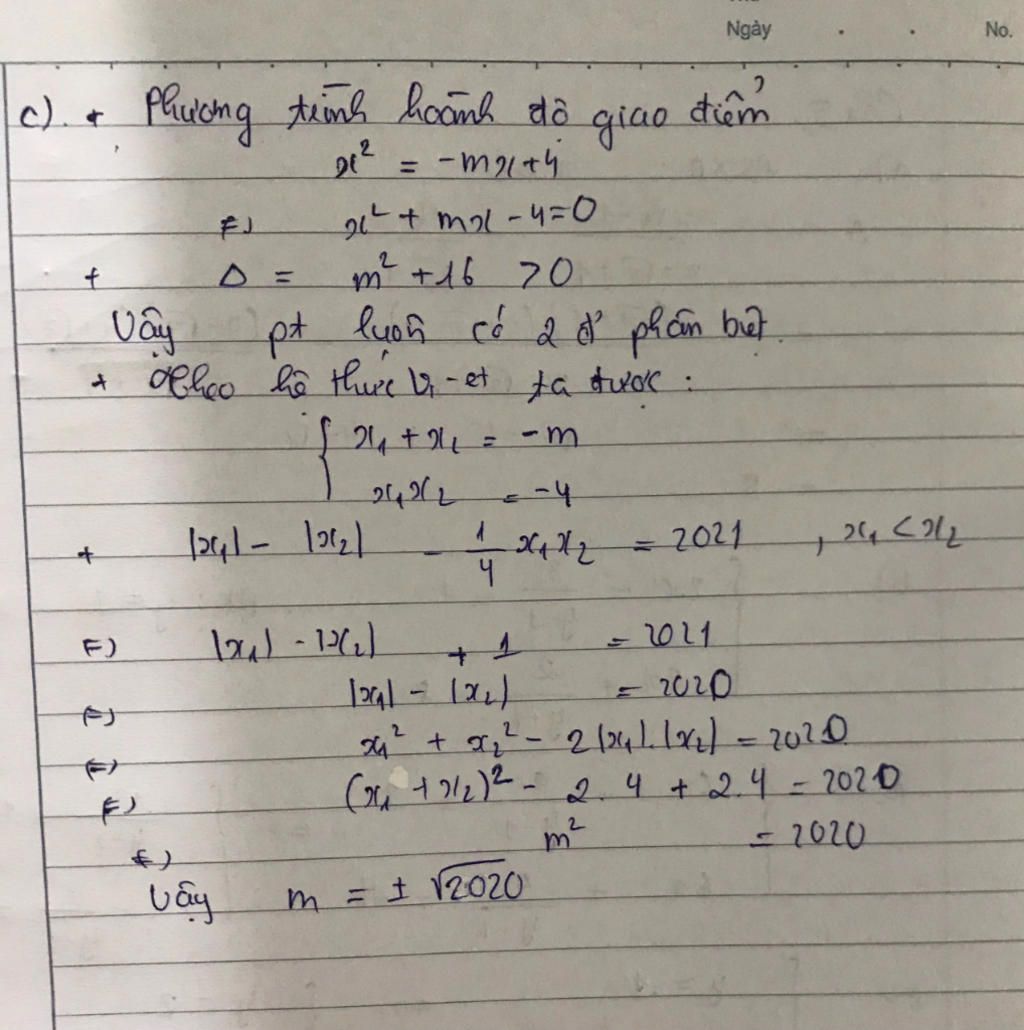 Ngày . . No.
c). + Phương trình hoành độ giao điểm
x² = -mx+4
⇔ x² + mx - 4=0
+ Δ = m² +16 >0
Vậy pt luôn có 2 phân biệt.
+ Theo hệ thức Vi-et ta được :
{ x₁ + x₂ = -m
x₁x₂ = -4
+ |x₁| - |x₂| - 1/4 x₁x₂ = 2021 , x₁ < x₂
⇔ |x₁| - |x₂| + 1 = 2021
⇔ |x₁| - |x₂| = 2020
⇔ x₁² + x₂² - 2|x₁|.|x₂| = 2020
⇔ (x₁ + x₂)² - 2.4 + 2.4 = 2020
⇔ m² = 2020
Vậy m = ± √2020